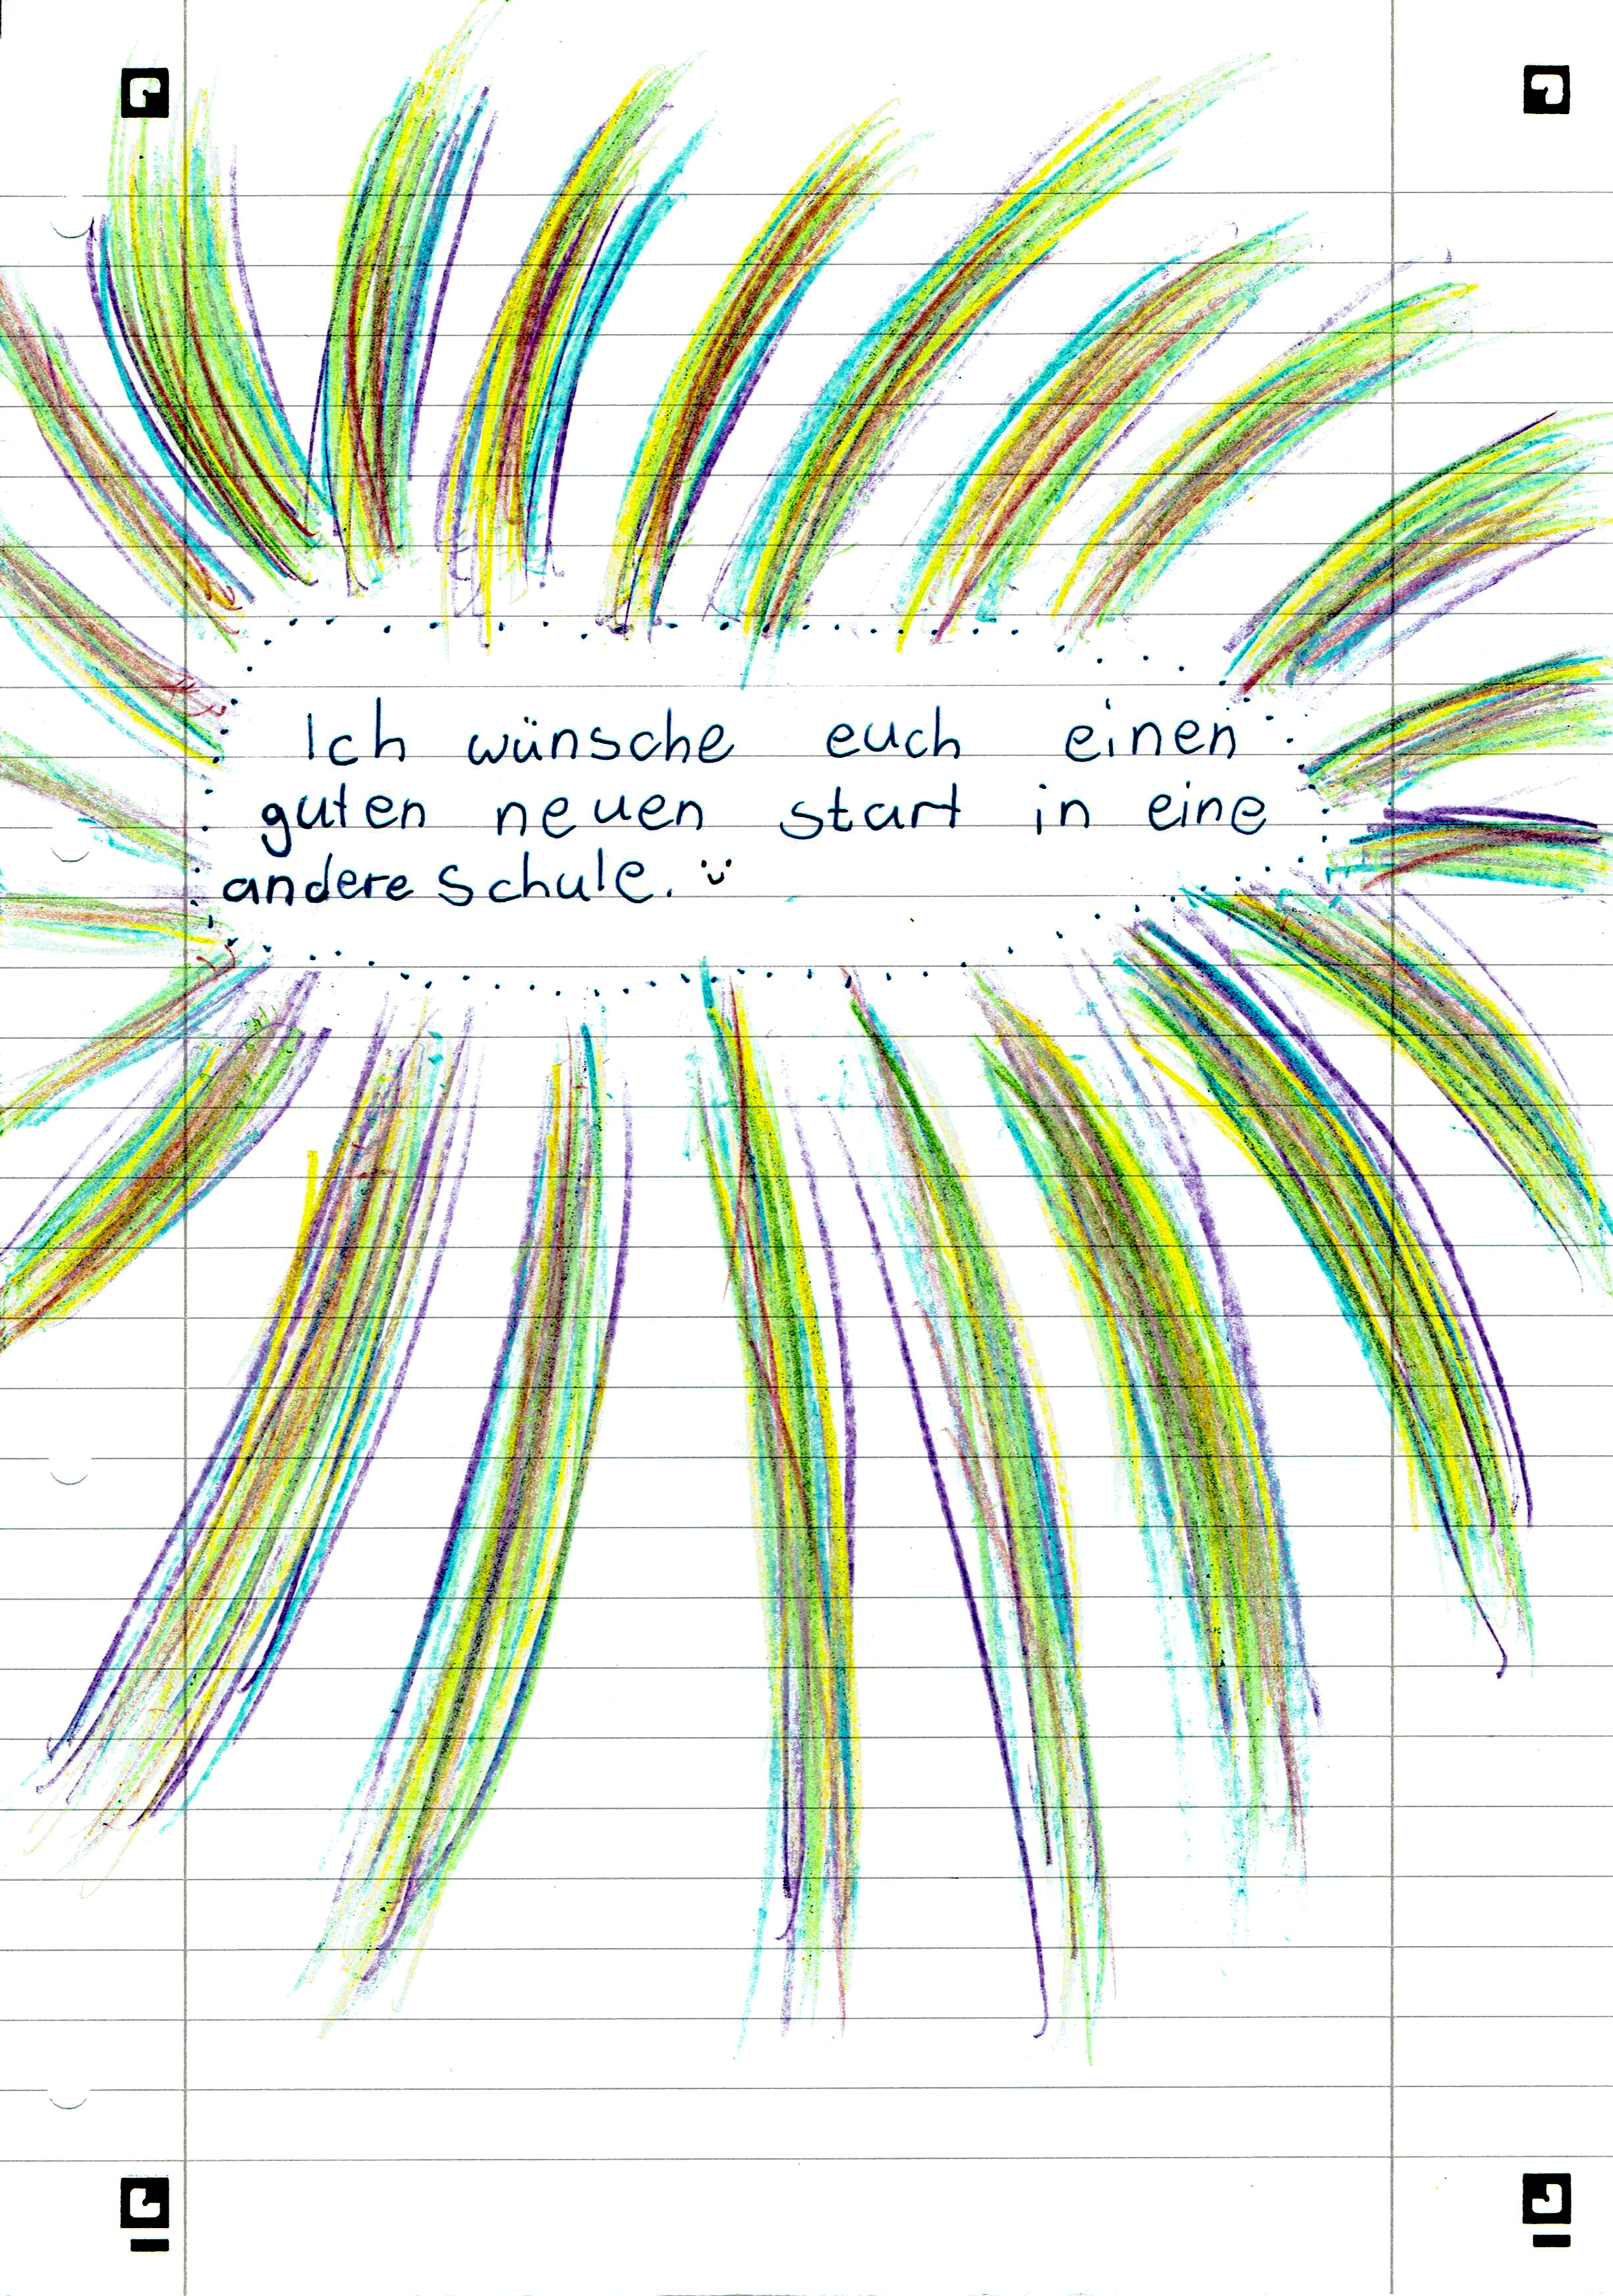 Ich wünsche euch einen
guten neuen start in eine
andere Schule. ü